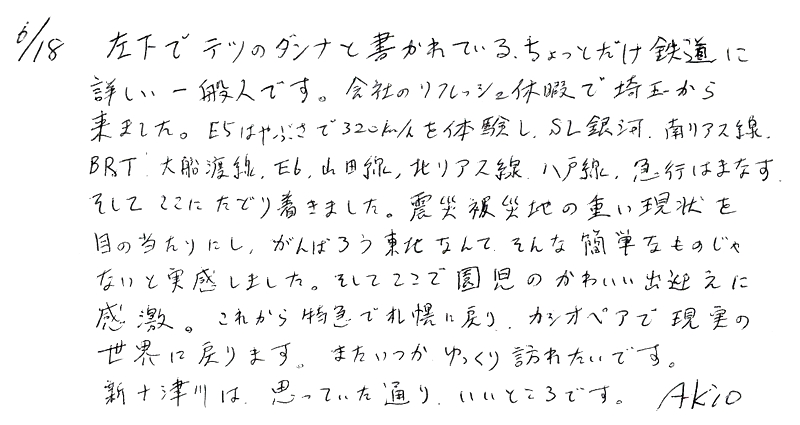 6/18 左下でテツのダンナと書かれている、ちょっとだけ鉄道に
詳しい一般人です。会社のリフレッシュ休暇で埼玉から
来ました。E5はやぶさで320km/hを体験し、SL銀河、南リアス線、
BRT、大船渡線、E6、山田線、北リアス線、八戸線、急行はまなす、
そしてここにたどり着きました。震災被災地の重い現状を
目の当たりにし、がんばろう東北なんて、そんな簡単なものじゃ
ないと実感しました。そしてここで園児のかわいい出迎えに
感激。これから特急で札幌に戻り、カシオペアで現実の
世界に戻ります。またいつかゆっくり訪れたいです。
新十津川は、思っていた通り、いいところです。 Akio